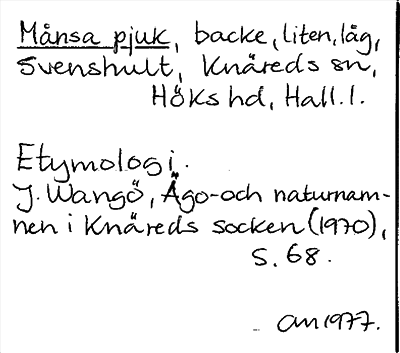 Månsa pjuk, backe, liten, låg,
Svenshult, Knäreds sn,
Höks hd, Hall. l.
Etymologi.
J. Wangö, Ägo- och naturnam-
nen i Knäreds socken (1970),
s. 68.
1977.